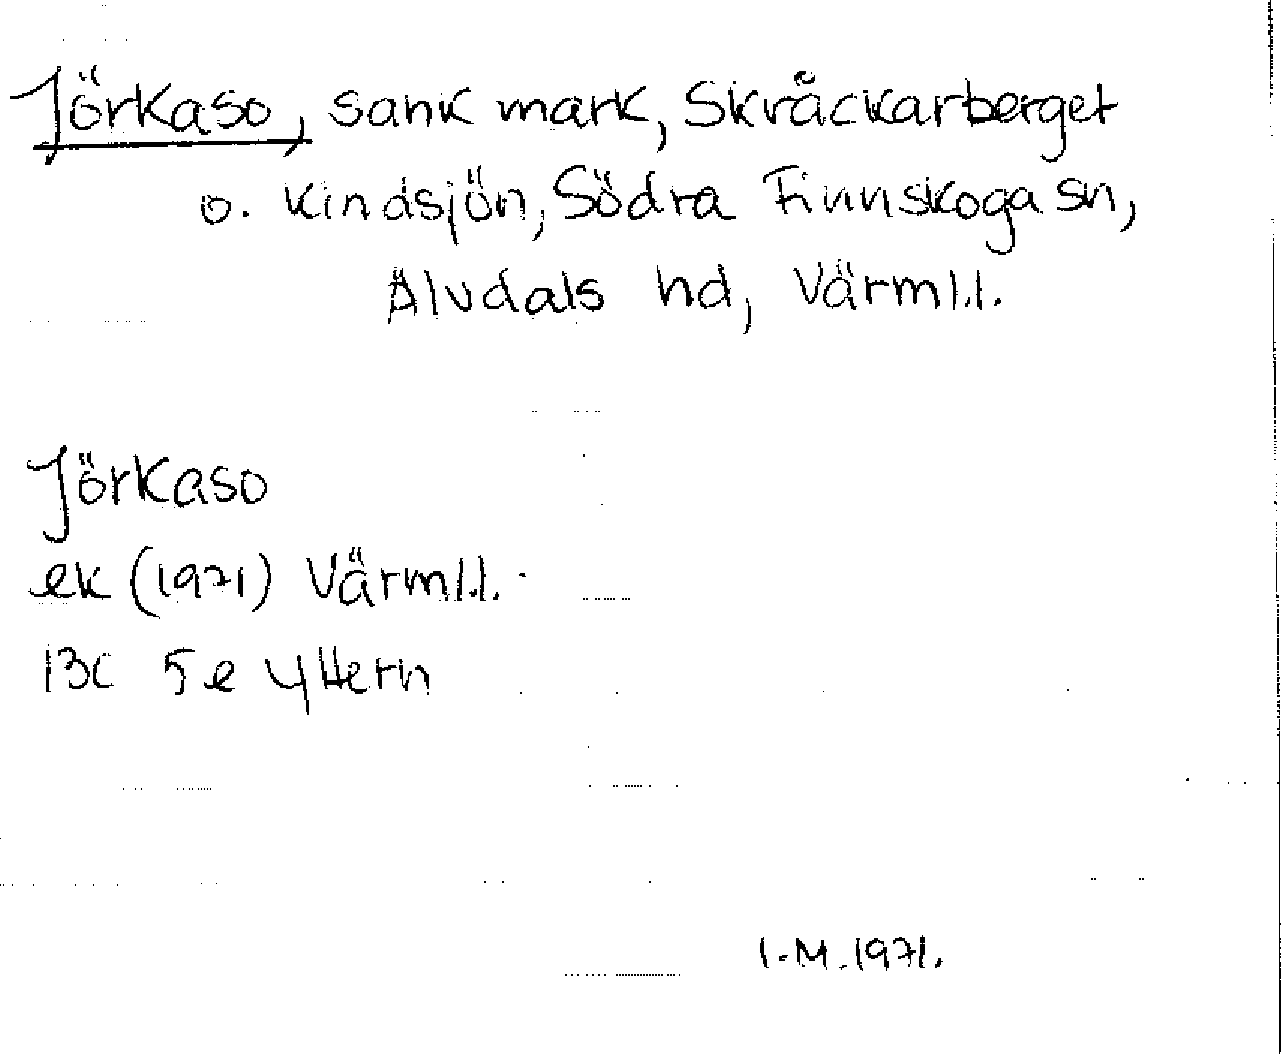 Jörkaso, sank mark, Skråckarberget
o. Kindsjön, Södra Finnskoga sn,
Älvdals hd, Värml.l.
Jörkaso
ek (1971) Värml.l.
13C 5e Yttern
I.M. 1971.